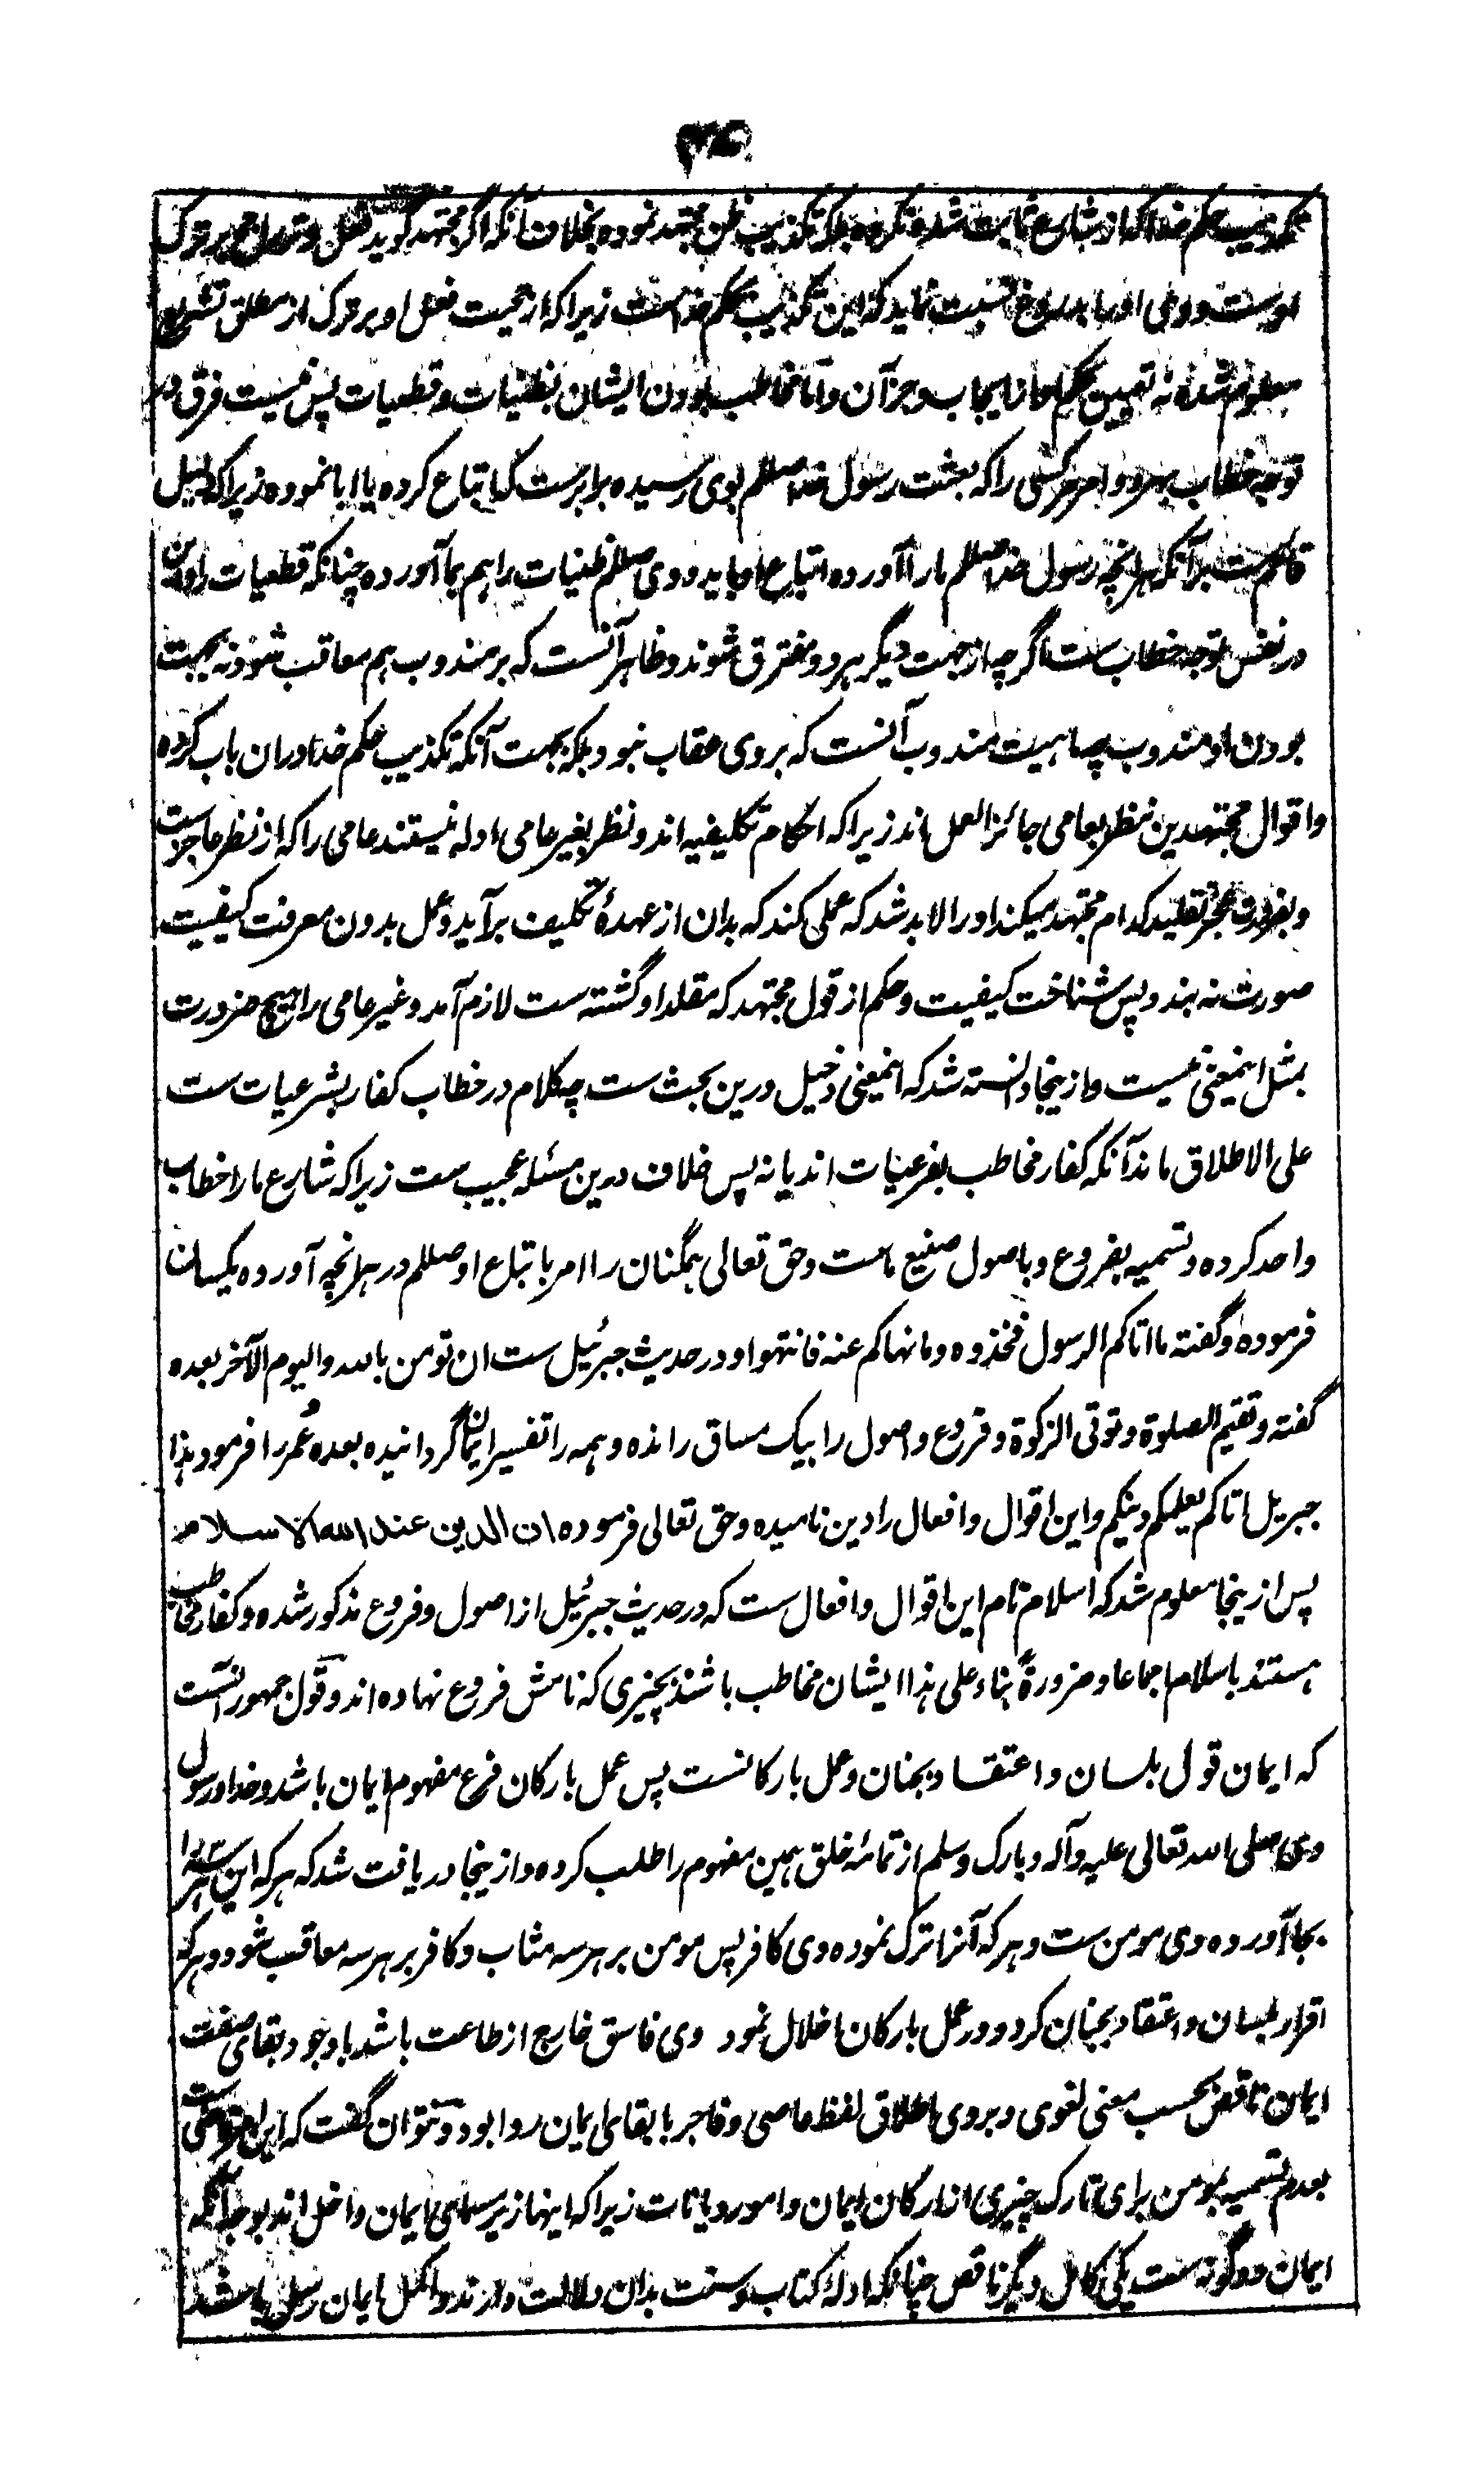 تکذیب حکم خدا که از شارع ثابت شده نکرده بلکه تکذیب ظن مجتهد نموده بخلاف آنکه اگر مجتهد گوید فعل و ترک
اوست و وی او را نسبت نماید که این تکذیب حکم خداست زیرا که از حیث فعل او بر ترک از مطلق تشریع
معلوم شده نه تعیین حکم ما از ایجاب و جز آن و اما مخاطب بودن ایشان بظنیات و قطعیات پس نیست فرق در
توجه خطاب بهر دو امر هر کسی را که بعثت رسول خدا صلعم بوی رسیده برابرست که اتباع کرده یا ابا نموده زیرا که دلیل
قائم ست برآنکه هرانچه رسول خدا صلعم ما را آورده اتباع ما باید و وی صلعم ظنیات را هم بما آورده چنانکه قطعیات را
در نفس توجه خطاب ست اگرچه از جهت دیگر هر دو مفترق شوند و ظاهر آنست که بر مندوب هم معاقب شوند نه بجهت
بودن او مندوب چه ماهیت مندوب آنست که بر وی عقاب نبود بلکه بجهت آنکه تکذیب حکم خدا دران باب کرده
و اقوال مجتهدین نظر بعامی جائز العمل اند زیرا که احکام تکلیفیه اند و نظر بغیر عامی ادله نیستند عامی را که از نظر عاجزست
و بضرورت عجز تقلید کدام مجتهد میکند او را لا بد شد که عملی کند که بدان از عهدهٔ تکلیف برآید و عمل بدون معرفت کیفیت
صورت نه بندد پس شناخت کیفیت و حکم از قول مجتهد که مقلد او گشته ست لازم آمد و غیر عامی را هیچ ضرورت
بمثل اینمعنی نیست و ازینجا دانسته شد که اینمعنی دخیل درین بحث ست چه کلام در خطاب کفار بشرعیات ست
علی الاطلاق ماند آنکه کفار مخاطب بفرعیات اند یا نه پس خلاف درین مسئله عجیب ست زیرا که شارع ما را خطاب
واحد کرده و تسمیه بفروع و باصول صنیع ماست و حق تعالی همگنان را امر باتباع او صلعم در هرانچه آورده یکسان
فرموده و گفته ما اتاکم الرسول فخذوه و ما نهاکم عنه فانتهوا و در حدیث جبرئیل ست ان تومن بالله والیوم الآخر بعده
گفته و تقیم الصلوة و توتی الزکوة و فروع و اصول را بیک مساق رانده و همه را تفسیر ایمان گردانیده بعده عمر را فرمود هذا
جبریل اتاکم یعلمکم دینکم و این اقوال و افعال را دین نامیده و حق تعالی فرموده ان الدین عند الله الاسلام
پس ازینجا معلوم شد که اسلام نام این اقوال و افعال ست که در حدیث جبرئیل از اصول و فروع مذکور شده و کفار مخاطب
هستند باسلام اجماعا و ضرورةً بناء علی هذا ایشان مخاطب باشند بچیزی که نامش فروع نهاده اند و قول جمهور آنست
که ایمان قول بلسان و اعتقاد بجنان و عمل بارکانست پس عمل بارکان فرع مفهوم ایمان باشد و خدا و رسول
وی صلی الله تعالی علیه و آله و بارک و سلم از تمامهٔ خلق همین مفهوم را طلب کرده و ازینجا دریافت شد که هر که این هر سه را
بجا آورده وی مومن ست و هر که آنرا ترک نموده وی کافر پس مومن بر هر سه مثاب و کافر بر هر سه معاقب شود و هر که
اقرار بلسان و اعتقاد بجنان کرد و در عمل بارکان اخلال نمود وی فاسق خارج از طاعت باشد باوجود بقای صفت
ایمان ناقص بحسب معنی لغوی و بر وی اطلاق لفظ عاصی و فاجر با بقای ایمان روا بود و نتوان گفت که این
بعدم تسمیه بمومن برای تارک چیزی از ارکان ایمان و امور دیانات زیرا که اینها زیر مسمای ایمان داخل اند بوجه آنکه
ایمان دو گونه ست یکی کامل دیگر ناقص چنانکه ادلهٔ کتاب و سنت بدان دلالت دارند و اکمل ایمان رسل باشد